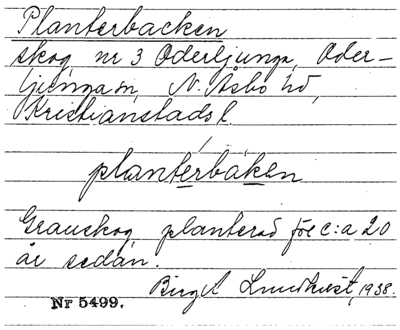 Planterbacken
skog nr 3 Oderljunga, Oder-
ljunga sn, N. Åsbo hd,
Kristianstads l.
planterbaken
Granskog planterad för c:a 20
år sedan.
Birgit Lundkvist, 1938.
Nr 5499.